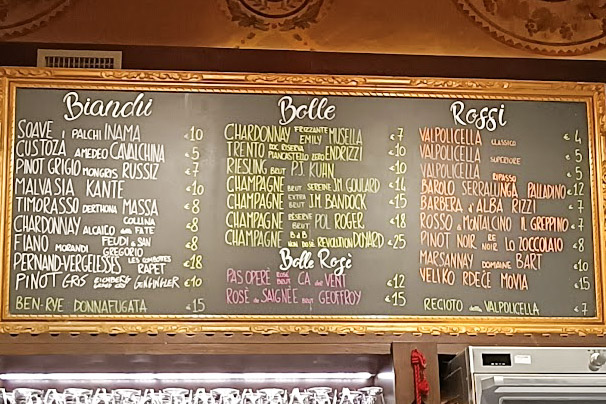 Bianchi
SOAVE I PALCHI INAMA €10
CUSTOZA AMEDEO CAVALCHINA €5
PINOT GRIGIO MONGRIS RUSSIZ €7
MALVASIA KANTE €10
TIMORASSO DERTHONA MASSA €8
CHARDONNAY ALCAICO COLLINA della FATE €8
FIANO MORANDI FEUDI di SAN GREGORIO €8
PERNAND-VERGELESSES LES COMBOTTES RAPET €18
PINOT GRIS GENGINGLER €10
BEN-RYE DONNAFUGATA €15
Bolle
CHARDONNAY FRIZZANTE EMILY MUSELLA €7
TRENTO DOC RISERVA PIANCASTELLO ZERO ENDRIZZI €10
RIESLING BRUT P.J. KUHN €10
CHAMPAGNE BRUT SEREINE J.M. GOULARD €14
CHAMPAGNE EXTRA BRUT J.M. BANDOCK €15
CHAMPAGNE RÉSERVE BRUT POL ROGER €18
CHAMPAGNE B.d.B. NON DOSÉ REVOLUTION DOYARD €25
Bolle Rosé
PAS OPERÉ ROSÉ BRUT CA dei VENTI €12
ROSÉ de SAIGNÉE BRUT GEOFFROY €15
Rossi
VALPOLICELLA CLASSICO €4
VALPOLICELLA SUPERIORE €5
VALPOLICELLA RIPASSO €5
BAROLO SERRALUNGA PALLADINO €12
BARBERA d'ALBA RIZZI €7
ROSSO di MONTALCINO IL GREPPINO €7
PINOT NOIR LO ZOCCOLAIO €8
MARSANNAY DOMAINE BART €10
VELIKO RDEČE MOVIA €15
RECIOTO della VALPOLICELLA €7